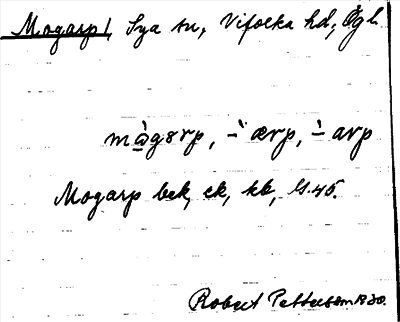 Mogarp, Sya sn, Vifolka hd, Ögl.
mågarp, -̀ ærp, -̀ arp
Mogarp bek, ek, kb, G.45.
Robert Pettersson 1930.